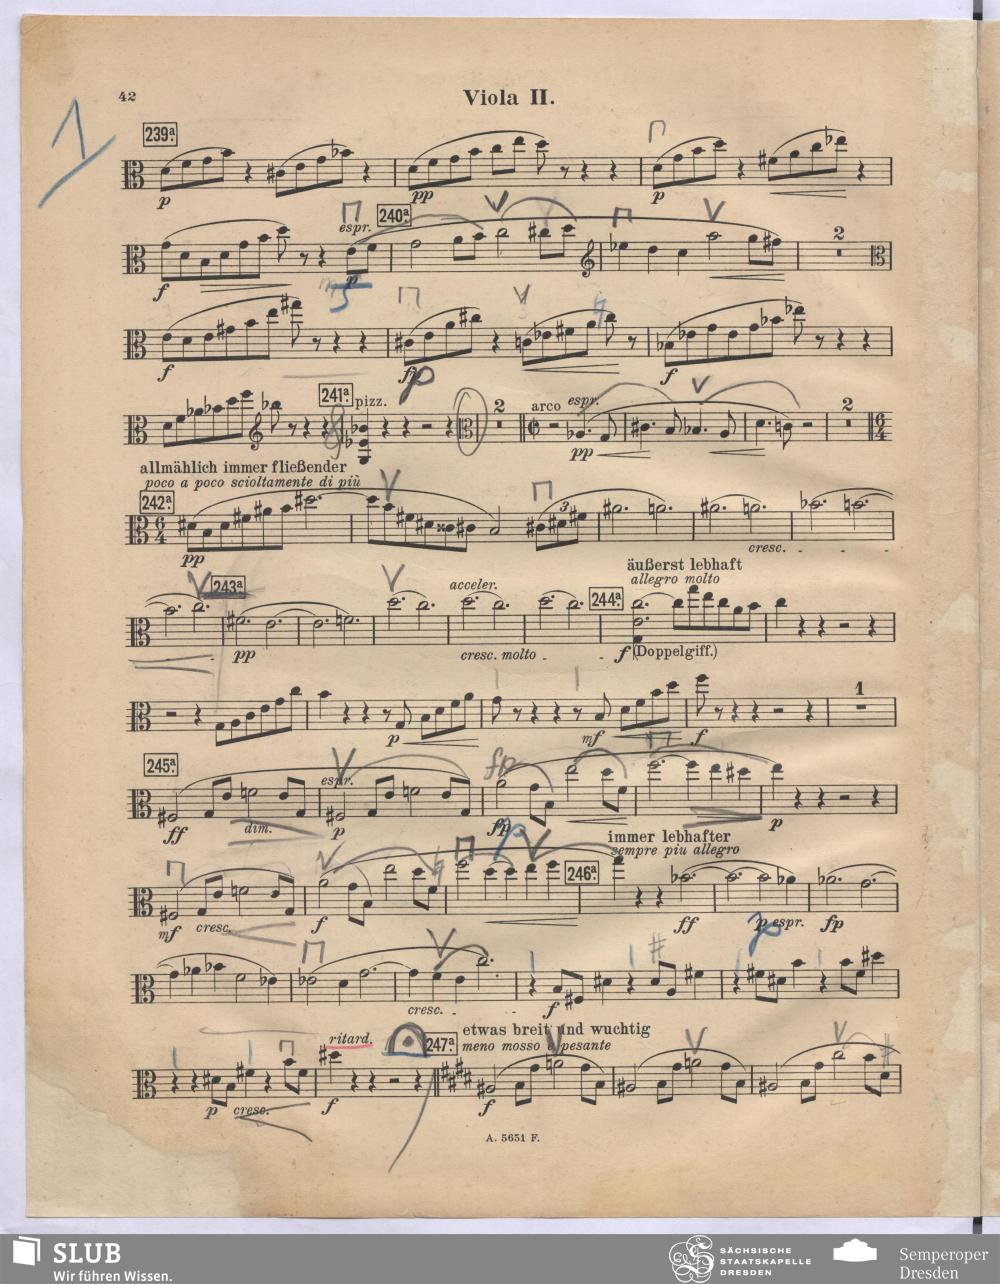 42
Viola II.
1
239ª.
p
pp
p
espr.
240ª.
2
f
p
f
fp
p
f
241ª.
pizz.
2
arco espr.
2
pp
allmählich immer fließender
poco a poco scioltamente di più
242ª.
6
4
3
pp
cresc.
äußerst lebhaft
allegro molto
243ª
acceler.
244ª.
pp
cresc. molto
f (Doppelgiff.)
1
p
mf
f
245ª.
espr.
fp
ff
dim.
p
fp
p
p
immer lebhafter
sempre più allegro
246ª.
mf
cresc.
f
ff
p espr.
fp
p
cresc.
f
ritard.
247ª.
etwas breit und wuchtig
meno mosso e pesante
p
cresc.
f
f
A. 5651 F.
SLUB
Wir führen Wissen.
SÄCHSISCHE
STAATSKAPELLE
DRESDEN
Semperoper
Dresden